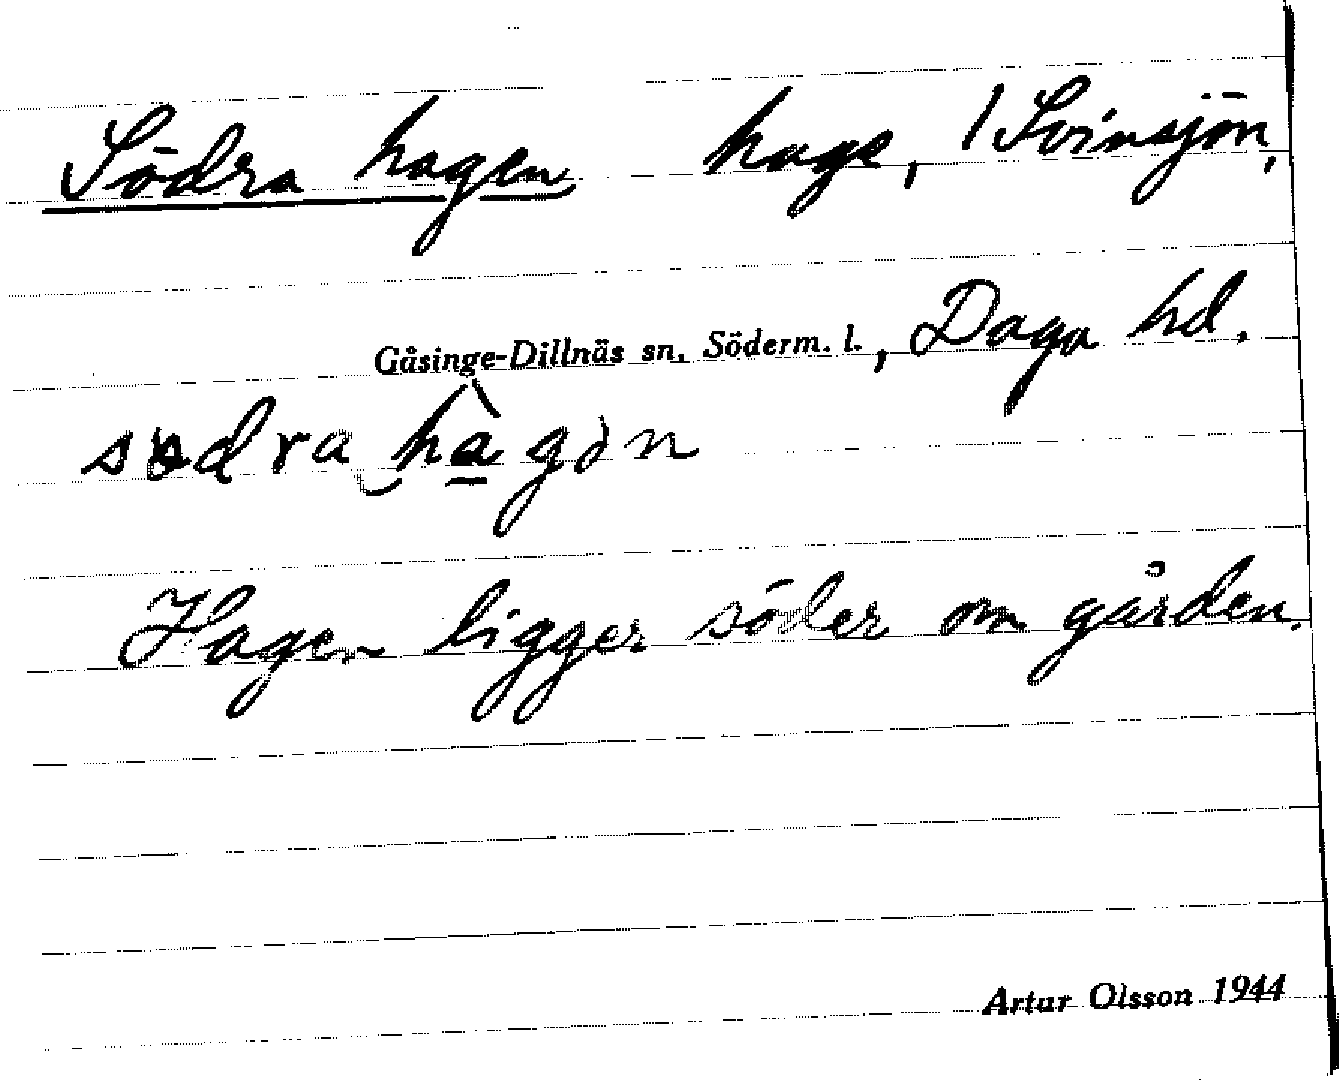 Södra hagen hage, 1 Svinsjön,
Gåsinge-Dillnäs sn. Söderm. l., Daga hd.
Hagen ligger söder om gården.
Artur Olsson 1944